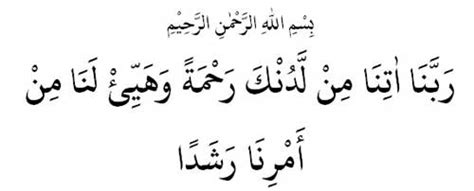 بِسْمِ اللهِ الرَّحْمٰنِ الرَّحِيْمِ
رَبَّنَا اٰتِنَا مِنْ لَّدُنْكَ رَحْمَةً وَهَيِّئْ لَنَا مِنْ
أَمْرِنَا رَشَدًا